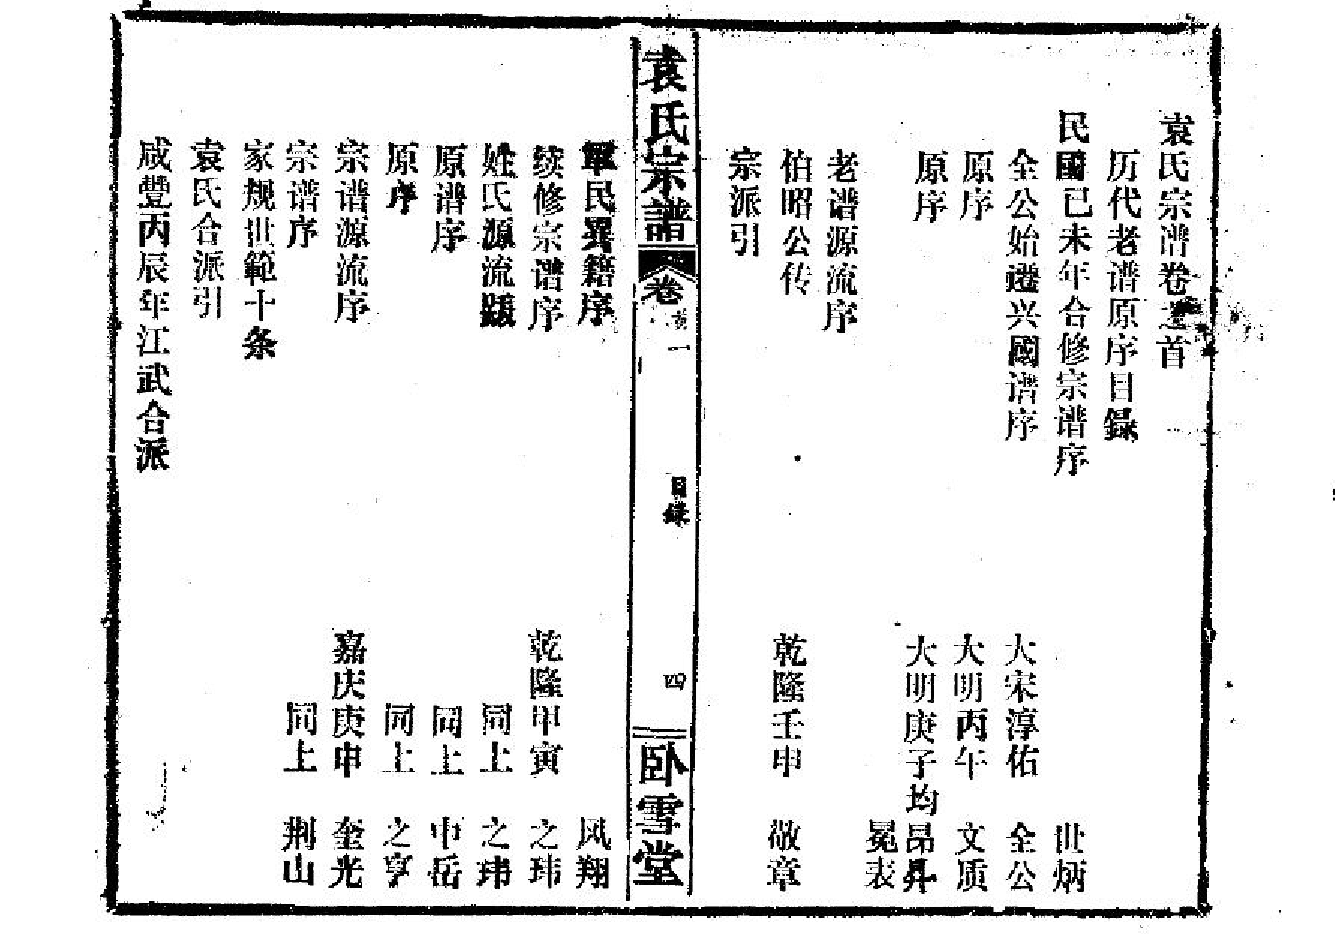 袁氏宗谱卷之首
历代老谱原序目錄
民國已未年合修宗谱序 世炳
全公始遷兴國谱序 大宋淳佑 全公
原序 大明丙午 文质
原序 大明庚子均 昂昇
冕表
老谱源流序
伯昭公传 乾隆壬申 敬章
宗派引
袁氏宗譜 卷首一 目錄 四 卧雪堂
軍民異籍序 凤翔
续修宗谱序 乾隆甲寅 之玮
姓氏源流跋 同上 之玮
原谱序 同上 中岳
原序 同上 之亨
宗谱源流序 嘉庆庚申 奎光
宗谱序 同上 荆山
家规世範十条
袁氏合派引
咸豐丙辰年江武合派